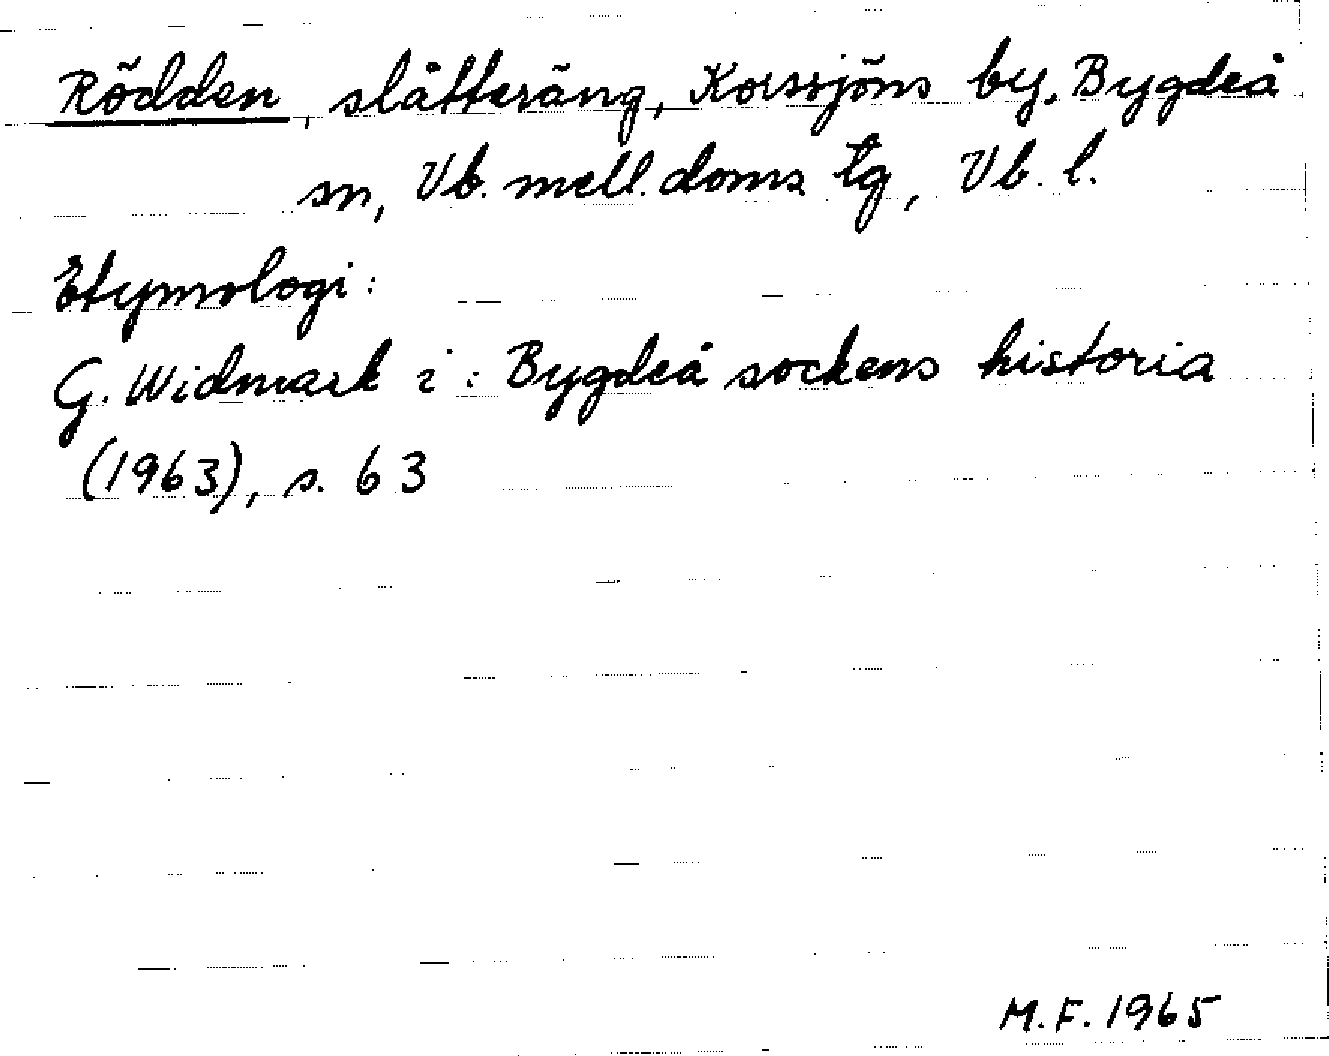 Rödden, slåtteräng, Korssjöns by, Bygdeå
sn, Vb. mell. doms tg, Vb. l.
Etymologi:
G. Widmark i: Bygdeå sockens historia
(1963), s. 63
M.F. 1965